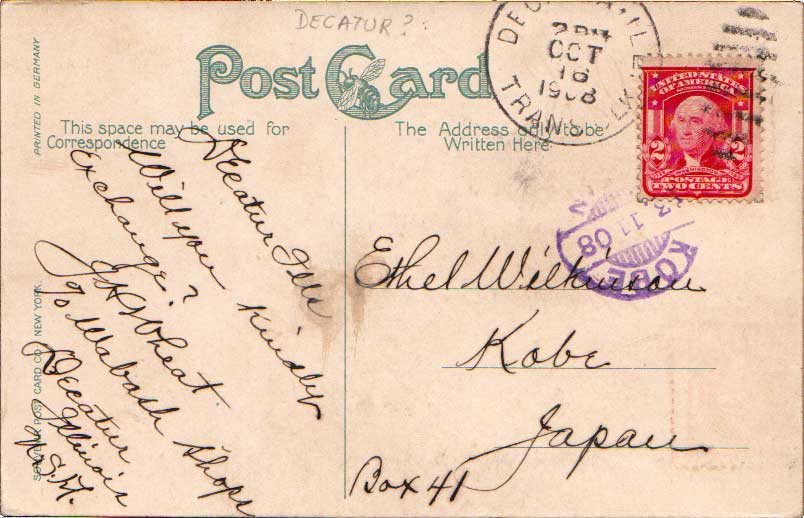 DECATUR?
PRINTED IN GERMANY
Post Card
This space may be used for
Correspondence
The Address only to be
Written Here
OCT
16
1908
TRANS. CLK
UNITED STATES
OF AMERICA
2 2
WASHINGTON
POSTAGE
TWO CENTS
KOBE
11 08
Decatur Ills
Will you kindly
Exchange?
J A Wheat
c/o Wabash Shops
Decatur
Illinois
U.S.A.
Ethel Wilkinson
Kobe
Japan
Box 41
SOUVENIR POST CARD CO. NEW YORK